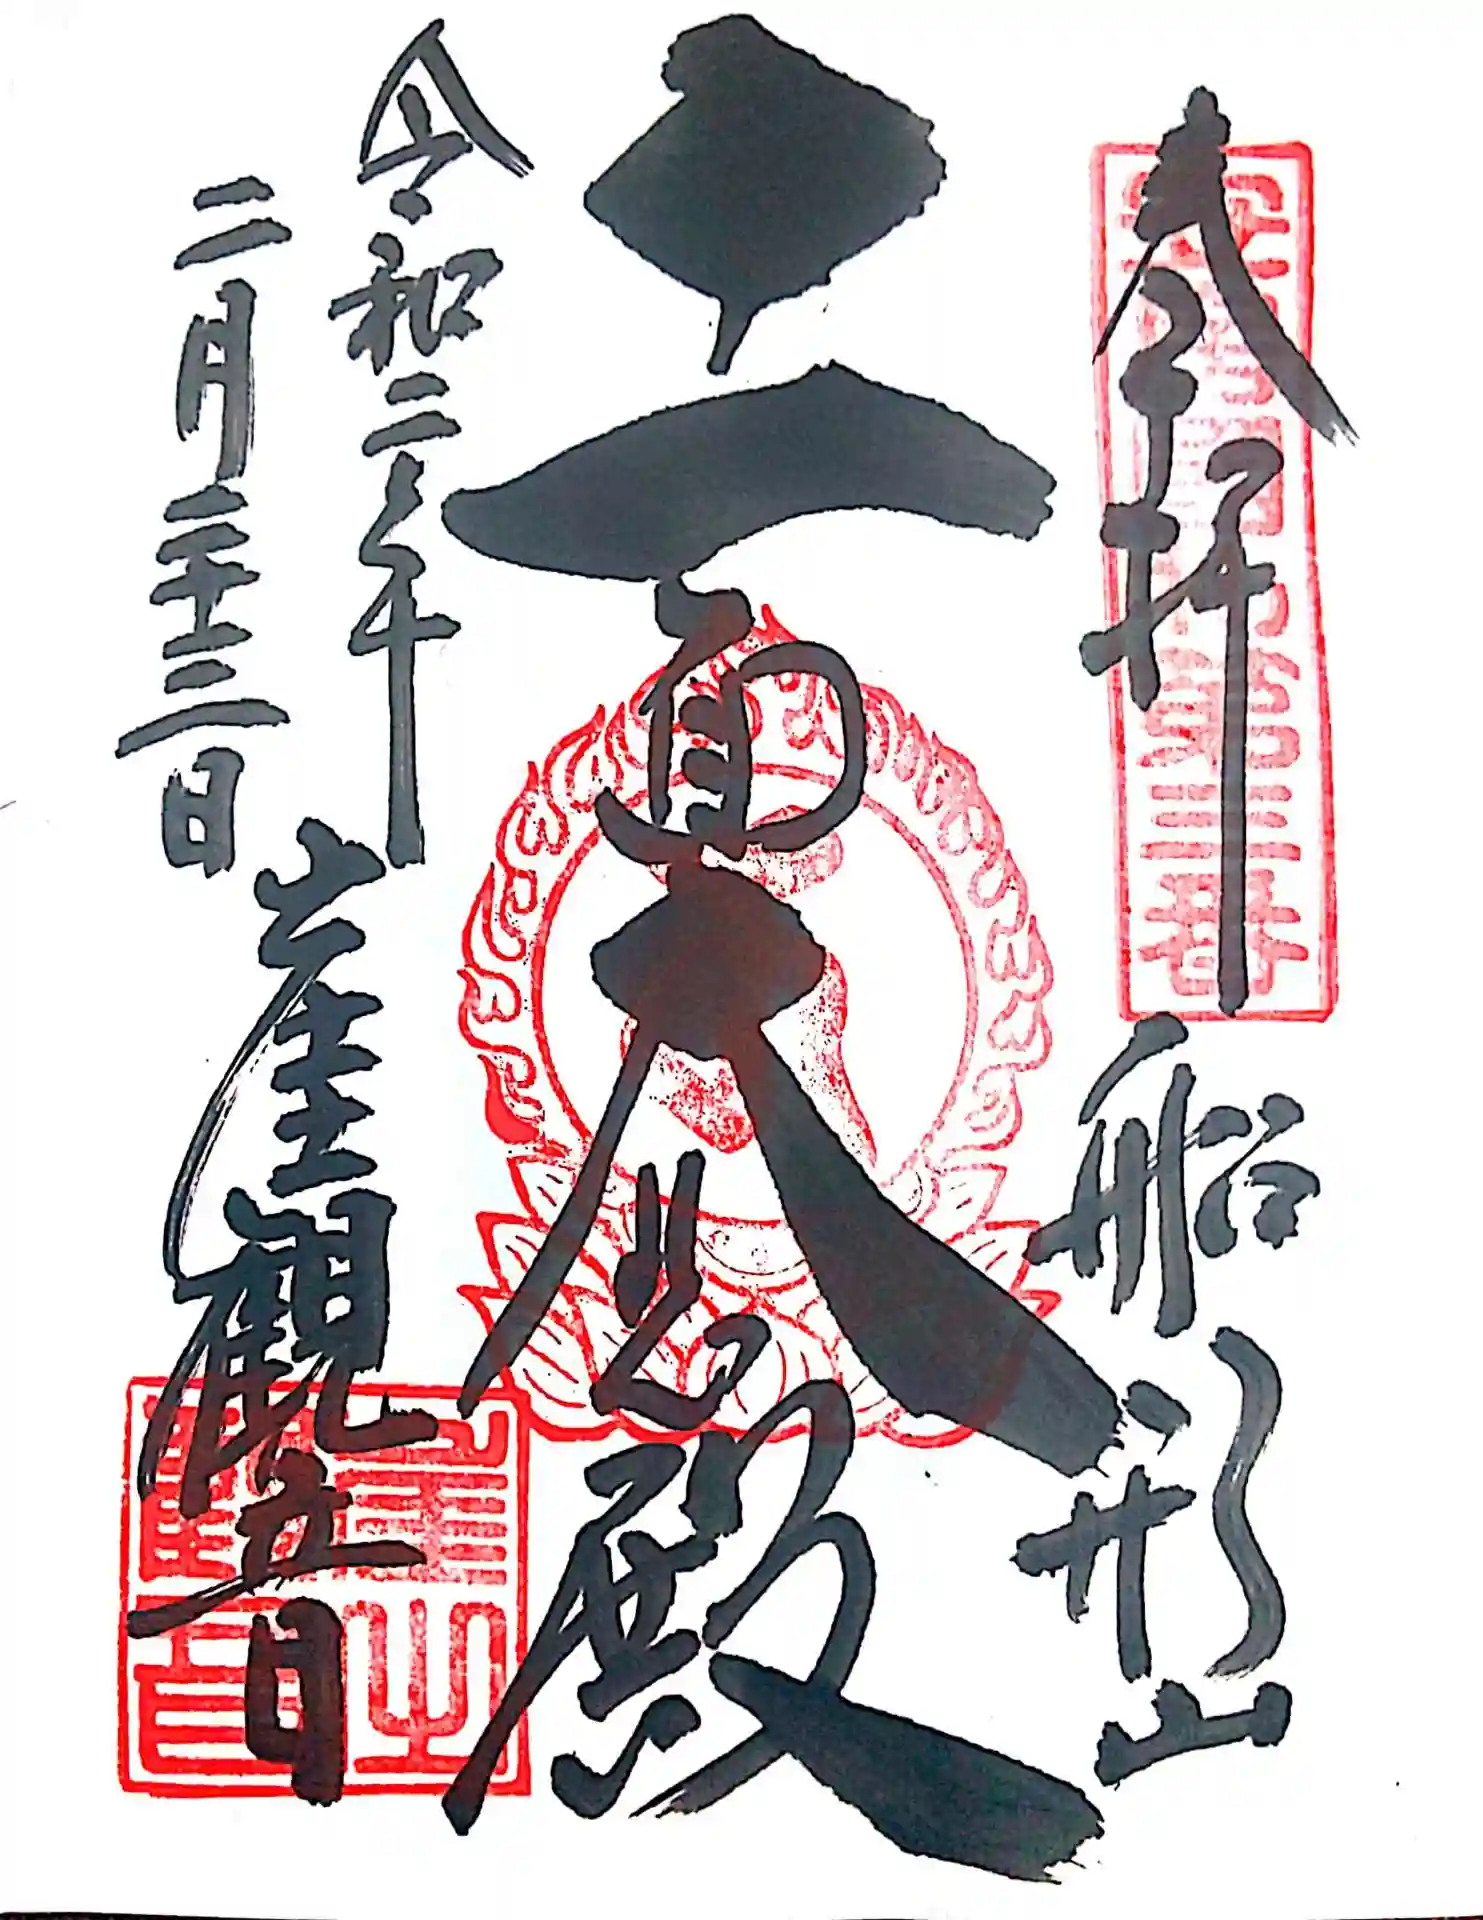 奉拝
船形山
十一面大悲殿
令和二年
二月二十三日
崖觀音
第三番